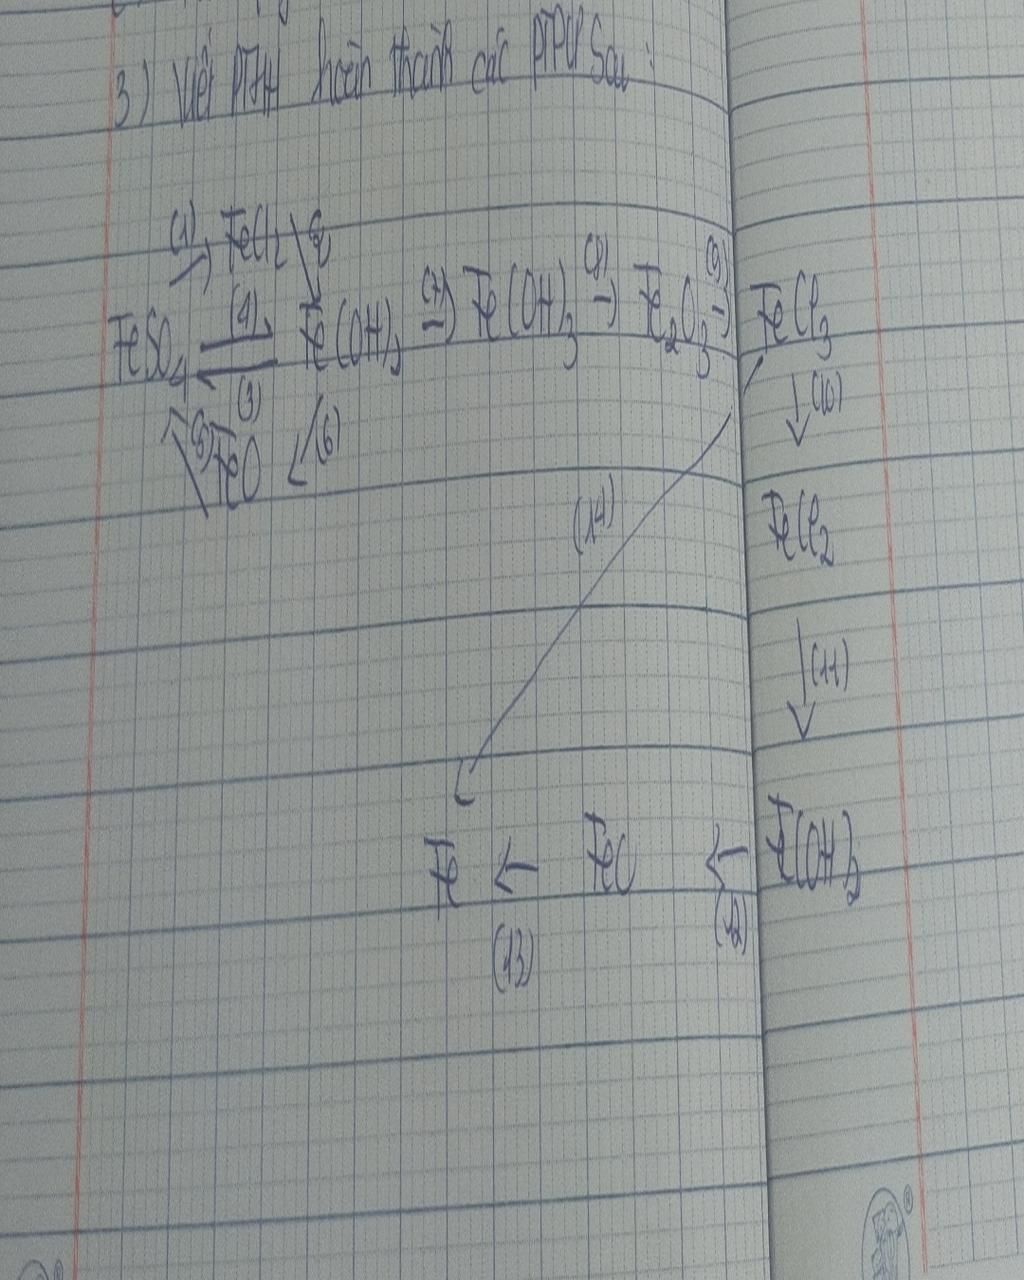 3) Viết PTHH hoàn thành các PTPƯ Sau :
(1) FeCl2 (2)
FeSO4 (4) (3) Fe(OH)2 (7) → Fe(OH)3 (8) → Fe2O3 (9) → FeCl3
(5) FeO (6) ↓ (10)
(14) FeCl2
↓ (11)
Fe ← (13) FeO ← (12) Fe(OH)2